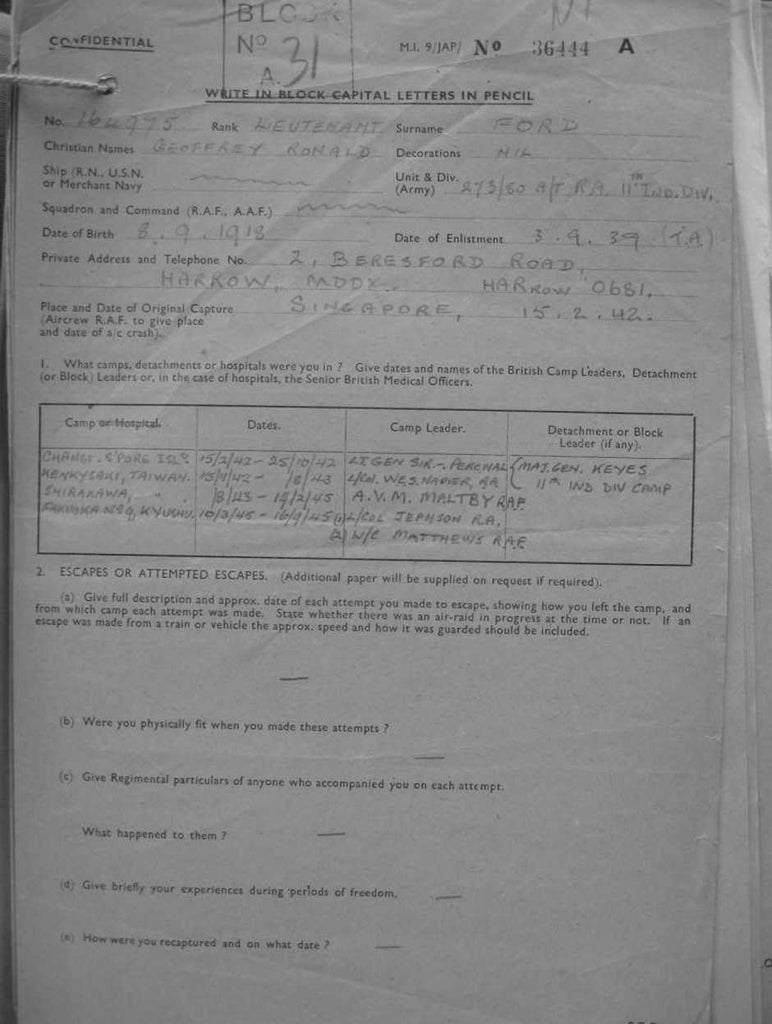 BLOCK
CONFIDENTIAL
No
A. 31
M.I. 9/JAP/ No 36444 A
WRITE IN BLOCK CAPITAL LETTERS IN PENCIL
No. 164975 Rank LIEUTENANT Surname FORD
Christian Names GEOFFREY RONALD Decorations NIL
Ship (R.N., U.S.N. or Merchant Navy
Unit & Div. (Army) 273/80 A/T R.A. 11TH IND. DIV.
Squadron and Command (R.A.F., A.A.F.)
Date of Birth 8.9.1918 Date of Enlistment 3.9.39 (T.A)
Private Address and Telephone No. 2, BERESFORD ROAD,
HARROW, MDDX. HARROW 0681.
Place and Date of Original Capture SINGAPORE, 15.2.42.
(Aircrew R.A.F. to give place
and date of a/c crash).
1. What camps, detachments or hospitals were you in ? Give dates and names of the British Camp Leaders, Detachment
(or Block) Leaders or, in the case of hospitals, the Senior British Medical Officers.
Camp or Hospital. Dates. Camp Leader. Detachment or Block Leader (if any).
CHANGI. S'PORE ISLD 15/2/42 - 25/10/42 LT GEN SIR - PERCIVAL MAJ. GEN. KEYES
TAIWAN. 15/11/42 - /8/43 L/COL. NAPIER, RA 11TH IND DIV CAMP
SHIRAKAWA, " . /8/43 - /2/45 A.V.M. MALTBY RAF
FUKUOKA No9, KYUSHU. 10/3/45 - 16/9/45 (1) L/COL JEPHSON R.A.
(2) W/C MATTHEWS R.A.F.
2. ESCAPES OR ATTEMPTED ESCAPES. (Additional paper will be supplied on request if required).
(a) Give full description and approx. date of each attempt you made to escape, showing how you left the camp, and
from which camp each attempt was made. State whether there was an air-raid in progress at the time or not. If an
escape was made from a train or vehicle the approx. speed and how it was guarded should be included.
—
(b) Were you physically fit when you made these attempts ?
—
(c) Give Regimental particulars of anyone who accompanied you on each attempt.
What happened to them ? —
(d) Give briefly your experiences during periods of freedom. —
(e) How were you recaptured and on what date ? —